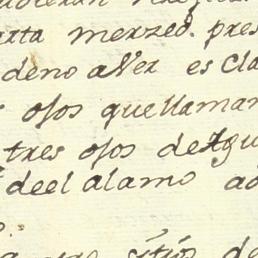 arta merzed. pres
deno aver es cla
ojos que llaman
tres ojos de agu
de el alamo ad
sitios de